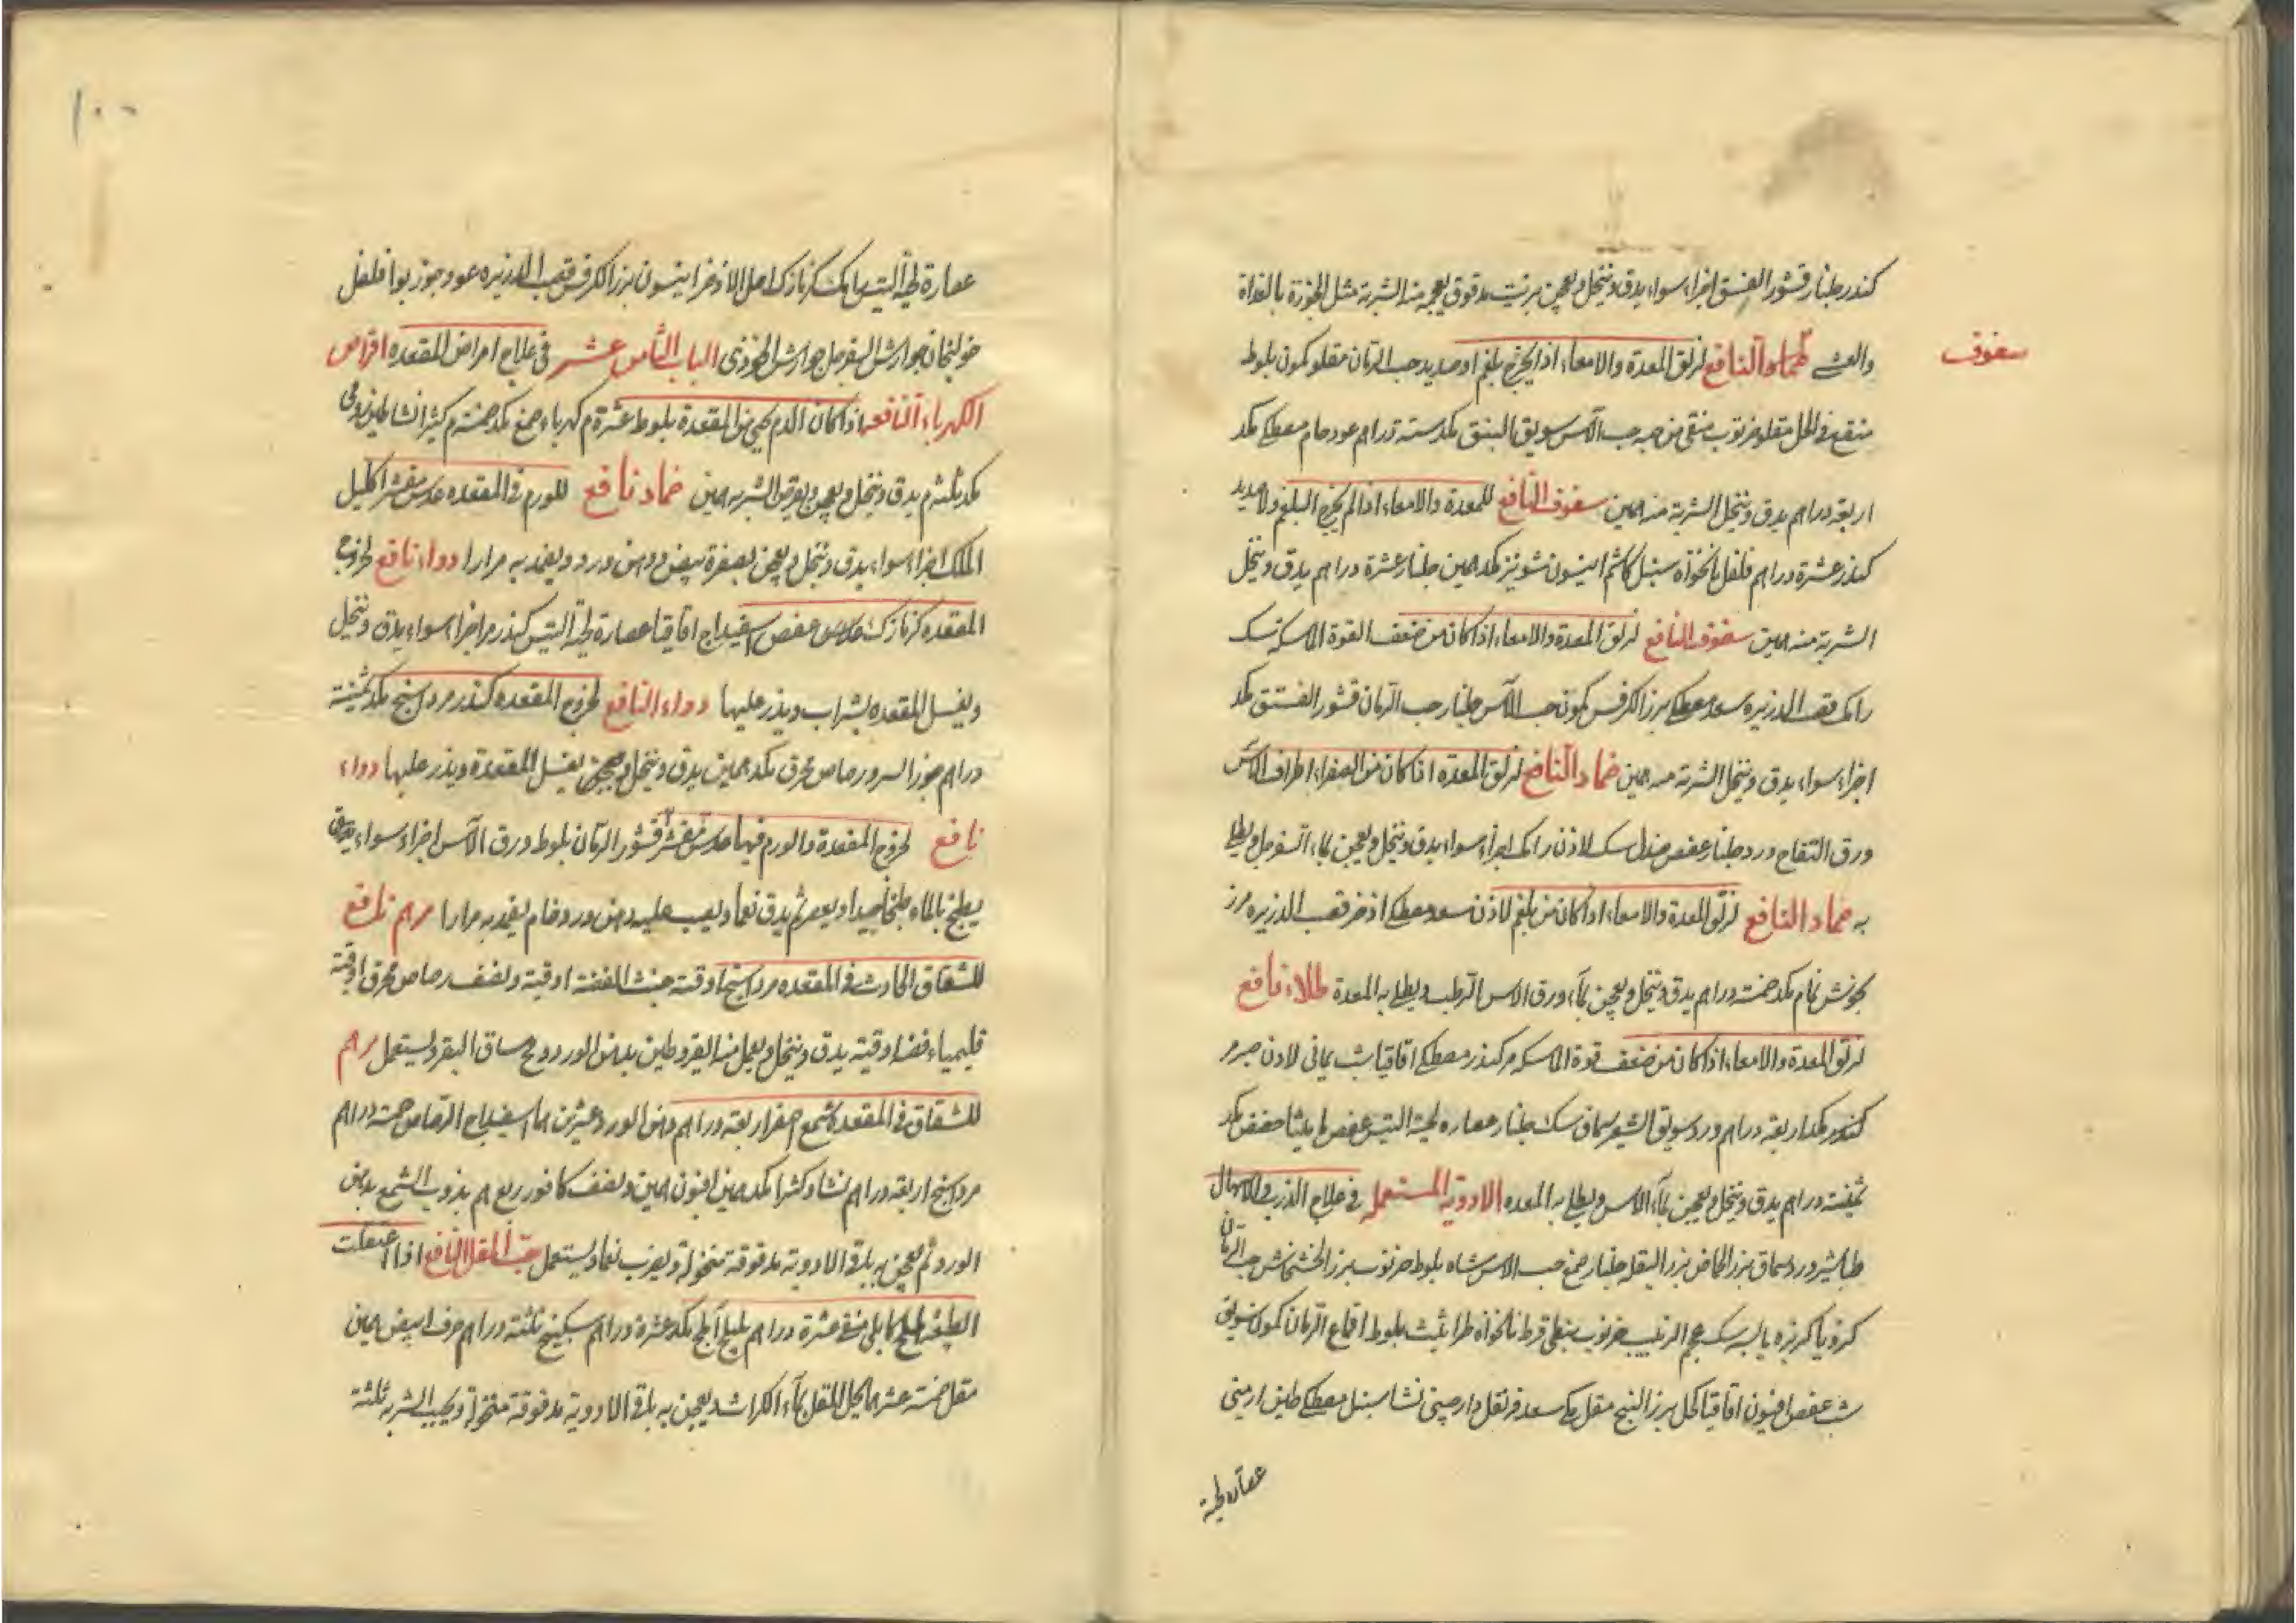 كندر جلنار قشور الفستق اجزاء سواء يدق وينخل ويعجن بزبيب مدقوق بعجمه الشربة مثل الجوزة بالغداة
سفوف
والعشي النافع لزلق المعدة والامعاء اذا لم يخرج بلغم او صديد حب الرمان مقلو كمون بلوط
منقع في الخل مقلو خرنوب منقى من حبه حب الآس سويق النبق مكد ستة دراهم عود خام مصطكي مكد
اربعة دراهم يدق وينخل الشربة منه همين سفوف النافع للمعدة والامعاء اذا لم يخرج البلغم ولا صديد
كندر عشرة دراهم فلفل نانخواه سنبل كاشم انيسون شونيز مكد همين جلنار عشرة دراهم يدق وينخل
الشربة منه همين سفوف النافع لزلق المعدة والامعاء اذا كان من ضعف القوة الماسكة سك
رامك قصب الذريره سعد مصطكي بزر الكرفس كمون حب الآس جلنار حب الرمان قشور الفستق مكد
اجزاء سواء يدق وينخل الشربة منه همين ضماد النافع لزلق المعدة اذا كان من الصفراء اطراف الآس
ورق التفاح ورد جلنار عفص صندل سك لاذن رامك اجزاء سواء يدق وينخل ويعجن بماء السفرجل ويطلى
به ضماد النافع لزلق المعدة والامعاء اذا كان من بلغم لاذن سعد مصطكي اذخر قصب الذريره مرز
نجوش نمام مكد خمسة دراهم يدق وينخل ويعجن بماء ورق الآس الرطب ويطلى به المعدة طلاء نافع
لزلق المعدة والامعاء اذا كان من ضعف قوة الماسكه مر كندر مصطكي اقاقيا شب يماني لاذن صبر مر
كندر مكد اربعة دراهم ورد سويق الشعير سماق سك جلنار عصاره لحية التيس عفص طراثيث حضض مكد
ثمنية دراهم يدق وينخل ويعجن بماء الآس ويطلى به المعده الادوية المستعمله في علاج الذرب والاسهال
طباشير ورد سماق بزر الحماض بزر البقله جلنار صمغ حب الآس شاه بلوط خرنوب بزر الخشخاش حب الرمان
كرويا كزبره يابسه سك عجم الزبيب خرنوب نبطي قرط نانخواه طراثيث بلوط اقماع الرمان كمون سويق
شب عفص افيون اقاقيا كحل بزر البنج مقل مكي سعد قرنفل دارصيني نشا سنبل مصطكي طين ارمني
عصاره لحية
١٠٠
عصارة لحية التيس رامك كزمازك اصل الاذخر انيسون بزر الكرفس قصب الذريره عود جوز بوا فلفل
خولنجان جوارش السفرجل جوارش الخوزى الباب الثامن عشر في علاج امراض المقعده اقراص
الكهرباء النافعه اذا كان الدم يجي من المقعدة بلوط عشرة م كهرباء صمغ مكد خمسة م كثيرا نشا طين رومى
مكد ثلثه م يدق وينخل ويعجن ويقرص الشربه همين ضماد نافع للورم في المقعده عدس مقشر اكليل
الملك اجزاء سواء يدق وينخل ويعجن بصفرة بيض ودهن ورد ويضمد به مرارا دواء نافع لخروج
المقعده كزمازك عدس عفص اسفيداج اقاقيا عصارة لحية التيس كندر مر اجزاء سواء يدق وينخل
ويغسل المقعده بشراب ويذر عليها دواء النافع لخروج المقعده كندر مرداسنج مكد ثمنية
دراهم جوز السرو رصاص محرق مكد همين يدق وينخل يغسل المقعدة ويذر عليها دواء
نافع لخروج المقعدة والورم فيها عدس مقشر قشور الرمان بلوط ورق الآس اجزاء سواء يدق
يطبخ بالماء طبخا جيدا ويعصر ثم يدق نعما ويصب عليه دهن ورد وخام يضمد به مرارا مرهم نافع
للشقاق الحادث في المقعده مرداسنج اوقية خبث الفضة اوقية ونصف رصاص محرق اوقية
قليمياء فضه اوقية يدق وينخل ويعمل منه القيروطى بدهن الورد ومخ ساق البقر ويستعمل مرهم
للشقاق في المقعده شمع اصفر اربعة دراهم دهن الورد عشرين هما اسفيداج الرصاص خمسة دراهم
مرداسنج اربعة دراهم نشا وكثيرا مكد همين افيون همين ونصف كافور ربع هم يذوب الشمع بدهن
الورد ثم يعجن به باقى الادوية مدقوقة منخولة ويضرب نعما ويستعمل حب المقل النافع اذا اعتقلت
الطبيعة هليلج كابلى منقى عشرة دراهم بليلج آملج مكد عشرة دراهم سكبينج ثلثة دراهم حرف ابيض همين
مقل خمسة عشر هما يحل المقل بماء الكراث ويعجن به باقى الادوية مدقوقة منخولة ويحبب الشربه ثلثة